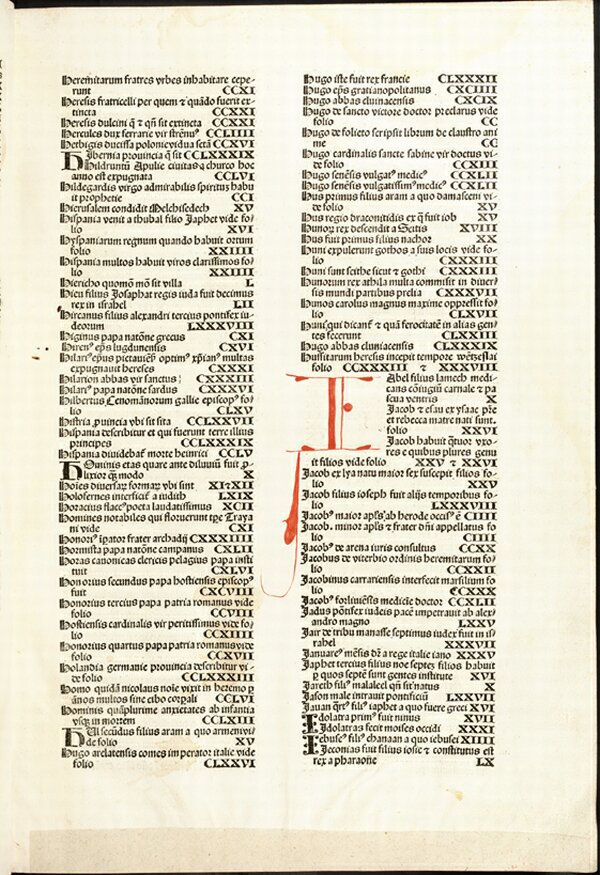 Heremitarum fratres vrbes inhabitare cepe-
runt CCXI
Heresis fratricelli per quem & quãdo fuerit ex-
tincta CCXXI
Heresis dulcini q̃ & qñ sit extincta CCXXI
Hercules dux ferrarie vir strẽnuꝰ CCLIIII
Herbigis ducissa polonie vidua setã CCXVI
Hibernia prouincia q̃ sit CCLXXXIX
Hildruntũ Apulie ciuitas q̃ turco hoc
anno est expugnata CCLVI
Hildegardis virgo admirabilis spiritus habu
it prophetie CCI
Hierusalem condidit Melchisedech XV
Hispania venit a thubal filio Japhet vide fo-
lio XVI
Hyspaniarum regnum quando habuit ortum
folio XXIIII
Hispania multos habuit viros clarissimos fo-
lio XXIIII
Hiericho quomõ mõ sit villa L
Hieu filius Josaphat regis iuda fuit decimus
rex in israhel LII
Hircanus filius alexandri tercius pontifex iu-
deorum LXXXVIII
Higinus papa natõne grecus CXI
Hirenꝰ ep̃s lugdunensis CXVI
Hilariꝰ ep̃us pictauieñ optimꝰ xp̃ianꝰ multas
expugnauit hereses CXXXI
Hilarion abbas vir sanctus CXXXIII
Hilariꝰ papa natõne sardus CXXXVI
Hilbertus Cenomãnorum gallie episcopꝰ fo-
lio CLXV
Histria p̃uincia vbi sit sita CCLXXVII
Hispania describitur et qui fuerunt terre illius
principes CCLXXXIX
Hispania diuidebaꝉ morte heinrici CCLV
Hominis etas quare ante diluuiũ fuit p̱-
lixior q̃ modo X
Hoĩes diuersaꝝ formaꝝ vbi sunt XI & XII
Holofernes interficiꝉ a iudith LXIX
Horacius flaccꝰ poeta laudatissimus XCII
Homines notabiles qui floruerunt tp̃e Traya
ni vide CXI
Honoriꝰ ip̃ator frater archadij CXXXIIII
Hormista papa natõne campanus CXLII
Horas canonicas clericis pelagius papa insti
tuit CXLVI
Honorius secundus papa hostiensis episcopꝰ
fuit CXCVIII
Honorius tercius papa patria romanus vide
folio CCVIII
Hostiensis cardinalis vir peritissimus vide fo-
lio CCXIIII
Honorius quartus papa patria romanus vide
folio CCXVII
Holandia germanie prouincia describitur vi-
de folio CCLXXXIII
Homo quidã nicolaus noĩe vixit in heremo p̱
ãnos multos sine cibo corpali CCLVI
Hominis quãplurime anxietates ab infantia
vsq̃ in mortem CCLXIII
Hul secũdus filius aram a quo armeni vi-
de folio XV
Hugo arelatensis comes imperator italie vide
folio CLXXVI
Hugo iste fuit rex francie CLXXXII
Hugo ep̃s gratianopolitanus CXCIIII
Hugo abbas cluinacensis CXCIX
Hugo de sancto victore doctor preclarus vide
folio CC
Hugo de folieto scripsit librum de claustro ani
me CC
Hugo cardinalis sancte sabine vir doctus vi-
de folio CCXIII
Hugo señesis vulgatꝰ medicꝰ CCXLII
Hugo señesis vulgatissimꝰ medicꝰ CCXLII
Hus primus filius aram a quo damasceni vi-
de folio XV
Hus regio draconitidis ex q̃ fuit iob XV
Hunoꝝ rex descendit a Scitis XVIII
Hus fuit primus filius nachor XX
Huni expulerunt gothos a suis locis vide fo-
lio CXXXIII
Huni sunt scithe sicut & gothi CXXXIII
Hunorum rex athila multa commisit in diuer
sis mundi partibus prelia CXXXVII
Hunos carolus magnus maxime oppressit fo-
lio CLXVII
Huni q̃si dicanꝉ & quã ferocitatẽ in alias gen-
tes fecerunt CLXXIII
Hugo abbas cluniacensis CLXXXIX
Hussitarum heresis incepit tempore wẽtzeslai
folio CCXXXIII & XXXVIII
IAbel filius lamech medi-
cans cõiugiũ carnale & pa
scua ventris X
Jacob & esau ex ysaac p̃re
et rebecca matre nati sunt.
folio XXVI
Jacob habuit q̃tuor vxo-
res e quibus plures genu
it filios vide folio XXV & XXVI
Jacob ex lya natu maior sex suscepit filios fo-
lio XXV
Jacob filius ioseph fuit alijs temporibus fo-
lio LXXXVIII
Jacobꝰ maior apl̃s ab herode occisꝰ ẽ CIIII
Jacob. minor apl̃s & frater dñi appellatus fo
lio CIIII
Jacobꝰ de arena iuris consultus CCXX
Jacobus de viterbio ordinis heremitarum fo-
lio CCXXII
Jacobinus carrariensis interfecit marsilium fo
lio CCXXX
Jacobꝰ forliuiẽsis medicĩe doctor CCXLII
Jadus põtifex iudeis pacẽ impetrauit ab alex
andro magno LXXV
Jair de tribu manasse septimus iudex fuit in is
rahel XXXVII
Januareꝰ mẽsis dẽ a rege italie iano XXXV
Japhet tercius filius noe septes filios habuit
p̱ quos septẽ sunt gentes institute XVI
Jareth filiꝰ malaleel qñ sit natus X
Jason male intrauit pontificiũ LXXVII
Jauan q̃rtꝰ filiꝰ iaphet a quo fuere greci XVI
Idolatra primꝰ fuit ninus XVII
Idolatras fecit moises occidi XXXI
Iebuseꝰ filiꝰ chanaan a quo iebusei XIIII
Jeconias fuit filius iosie & constitutus est
rex a pharaone LX